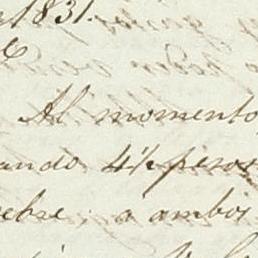 1831.
Al momento
ando 4½ pesos
ebre, a ambos